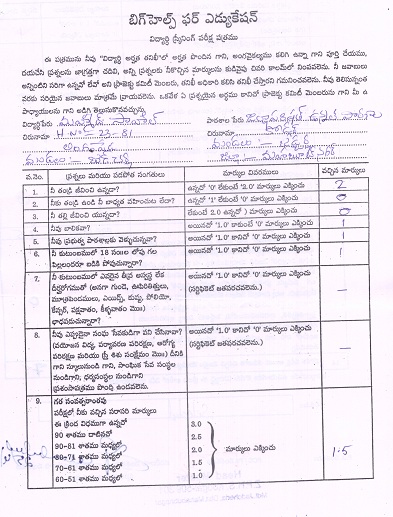 బిగ్‌హెల్ప్ ఫర్ ఎడ్యుకేషన్
విద్యార్థి స్క్రీనింగ్ పరీక్ష పత్రము
ఈ పత్రమును నీవు "విద్యార్థి అర్హత తనిఖీ"లో అర్హత పొందిన గాని, అంగవైకల్యము కలిగి ఉన్నా గాని పూర్తి చేయుము,
దయచేసి ప్రశ్నలకు జాగ్రత్తగా చదివి, అన్ని ప్రశ్నలకు నీకొచ్చిన మార్కులను కుడివైపు చివరి కాలమ్‌లో నింపవలెను. నీ జవాబులు
అన్నింటిని సరిగా ఉన్నవో లేవో అని ప్రాజెక్టు కమిటీ మెంబరు, తనిఖీ అధికారి కలిసి తనిఖీ చేస్తారని గమనించవలెను. నీవు తెలిసినంతవరకు
సరియైన జవాబులు మాత్రమే వ్రాయవలెను. ఒకవేళ ఏ ప్రశ్నయైన అర్థము కానిచో ప్రాజెక్టు కమిటీ మెంబరును గాని మీ ఉ
పాధ్యాయులను గాని అడిగి తెల్సుకొనవచ్చును.
విద్యార్థిపేరు పాఠశాల పేరు
చిరునామా H.No-23-81 చిరునామా
మండలం మండలం
జిల్లా
వ.నెం. ప్రశ్నలు మరియు పదబోత సంగతులు మార్కుల వివరములు వచ్చిన మార్కులు
1. నీ తండ్రి జీవించి ఉన్నాడా? ఉన్నచో '0' లేకుంటే '2.0' మార్కులు ఎక్కించు 2
2. నీకు తండ్రి ఉండి నీ బాధ్యత వహించుట లేదా? ఉన్నచో '1' లేకుంటే '0' మార్కులు ఎక్కించు 0
3. నీ తల్లి జీవించి యున్నదా? లేకుంటే 2.0 ఉన్నచో ) మార్కులు ఎక్కించు 0
4. నీవు బాలికవా? అయినచో '1.0' కాకుంటే '0' మార్కులు ఎక్కించు 1
5. నీవు ప్రభుత్వ పాఠశాలకు వెళ్ళుచున్నావా? అయినచో '1.0' కానిచో '0' మార్కులు ఎక్కించు 1
6. నీ కుటుంబములో 18 సంవత్సరాల లోపు గల
పిల్లలందరూ బడికి పోవుచున్నారా? అయినచో '1.0' కానిచో '0' మార్కులు ఎక్కించు 1
7. నీ కుటుంబములో ఎవరైన తీవ్ర అస్వస్థ లేక
దీర్ఘరోగముతో (అనగా గుండె, ఊపిరితిత్తులు,
మూత్రపిండములు, ఎయిడ్స్, కుష్ఠు, పోలియో,
కేన్సర్, పక్షవాతం, కీళ్ళవాతం మొ॥)
బాధపడుచున్నారా? అయినచో '1.0' కానిచో '0' మార్కులు ఎక్కించు
(సర్టిఫికెట్ జతపరచవలెను.) —
8. నీవు ఎప్పుడైనా సంఘ సేవకుడిగా పని చేసినావా?
(వయోజన విద్య, పర్యావరణ పరిరక్షణ, ఆరోగ్య
పరిరక్షణ మరియు స్త్రీ శిశు సంక్షేమం మొ॥) దీనికి
గాని స్కూలునుండి గాని, సాంఘిక సేవ సంస్థల
నుండిగాని, ధర్మసంస్థల నుండిగాని
ప్రశంసాపత్రము పొంది ఉండవలెను. అయినచో '1.0' కానిచో '0' మార్కులు ఎక్కించు
(సర్టిఫికెట్ జతపరచవలెను.) —
9. గత సంవత్సరాంతపు
పరీక్షలో నీకు వచ్చిన సరాసరి మార్కులు
ఈ క్రింద విధముగా ఉన్నచో
90 శాతము దాటినచో 3.0
90-81 శాతము మధ్యలో 2.5
80-71 శాతము మధ్యలో 2.0 మార్కులు ఎక్కించు 1.5
70-61 శాతము మధ్యలో 1.5
60-51 శాతము మధ్యలో 1.0